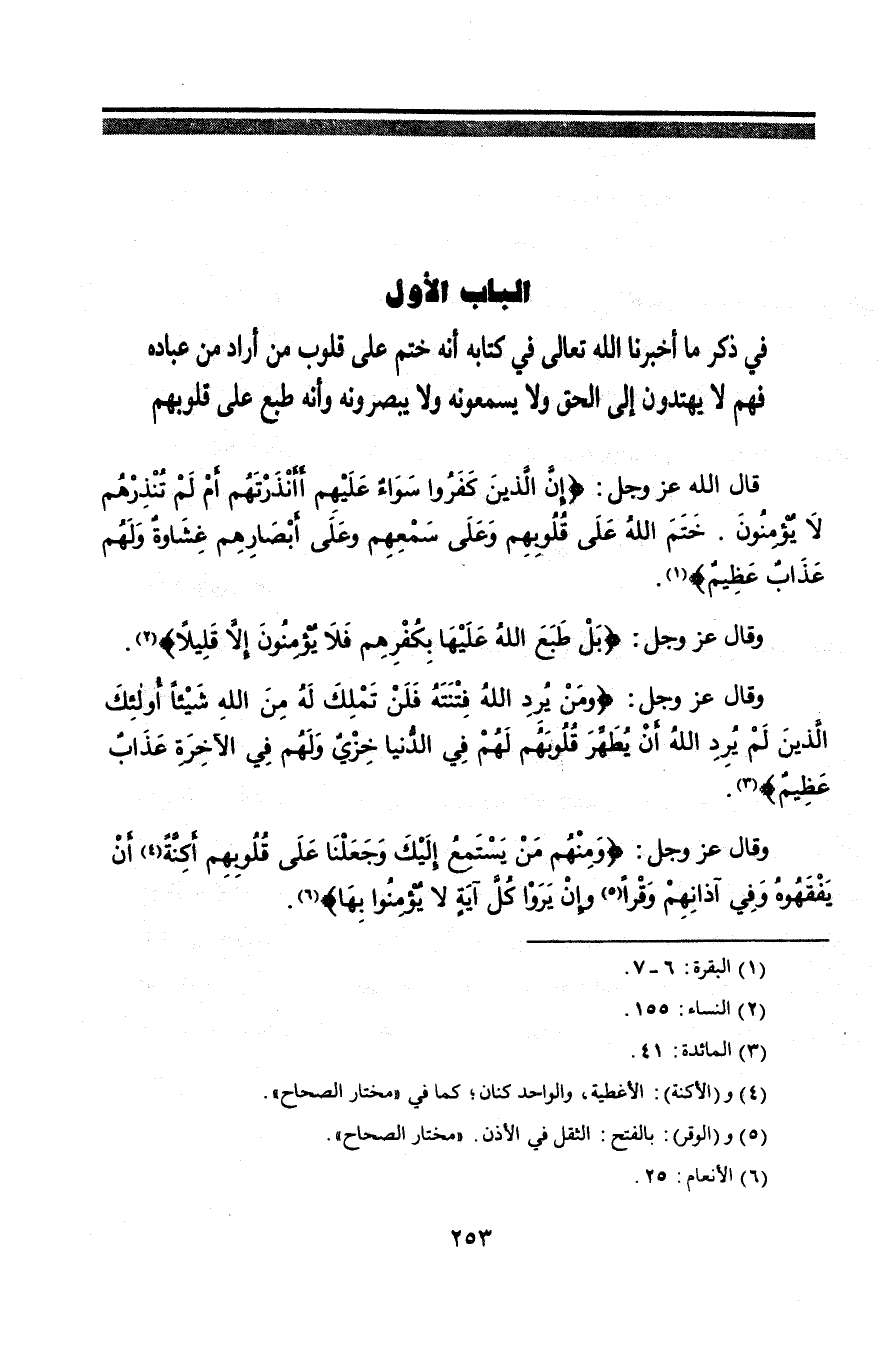 الباب الأول
في ذكر ما أخبرنا الله تعالى في كتابه أنه ختم على قلوب من أراد من عباده
فهم لا يهتدون إلى الحق ولا يسمعونه ولا يبصرونه وأنه طبع على قلوبهم
قال الله عز وجل: ﴿إِنَّ الَّذينَ كَفَرُوا سَوَاءٌ عَلَيْهِم أَأَنْذَرْتَهُم أَمْ لَمْ تُنْذِرْهُم
لَا يُؤْمِنُونَ . خَتَمَ اللهُ عَلَى قُلُوبِهِم وَعَلَى سَمْعِهِم وعَلَى أَبْصَارِهِم غِشَاوةٌ وَلَهُم
عَذَابٌ عَظِيمٌ﴾(١).
وقال عز وجل: ﴿بَلْ طَبَعَ اللهُ عَلَيْهَا بِكُفْرِهِم فَلَا يُؤْمِنُونَ إِلَّا قَلِيلًا﴾(٢).
وقال عز وجل: ﴿ومَنْ يُرِدِ اللهُ فِتْنَتَهُ فَلَنْ تَمْلِكَ لَهُ مِنَ اللهِ شَيْئاً أُولٰئِكَ
الَّذينَ لَمْ يُرِدِ اللهُ أَنْ يُطَهِّرَ قُلُوبَهُم لَهُمْ فِي الدُّنيا خِزْيٌ وَلَهُم فِي الآخِرَةِ عَذَابٌ
عَظِيمٌ﴾(٣).
وقال عز وجل: ﴿وَمِنْهُم مَنْ يَسْتَمِعُ إِلَيْكَ وَجَعَلْنَا عَلَى قُلُوبِهِم أَكِنَّةً(٤) أَنْ
يَفْقَهُوهُ وَفِي آذانِهِمْ وَقْراً(٥) وإِنْ يَرَوْا كُلَّ آيَةٍ لا يُؤْمِنُوا بِهَا﴾(٦).
(١) البقرة: ٦ - ٧.
(٢) النساء: ١٥٥.
(٣) المائدة: ٤١.
(٤) و (الأكنة): الأغطية، والواحد كنان؛ كما في «مختار الصحاح».
(٥) و (الوقر): بالفتح: الثقل في الأذن. «مختار الصحاح».
(٦) الأنعام: ٢٥.
٢٥٣